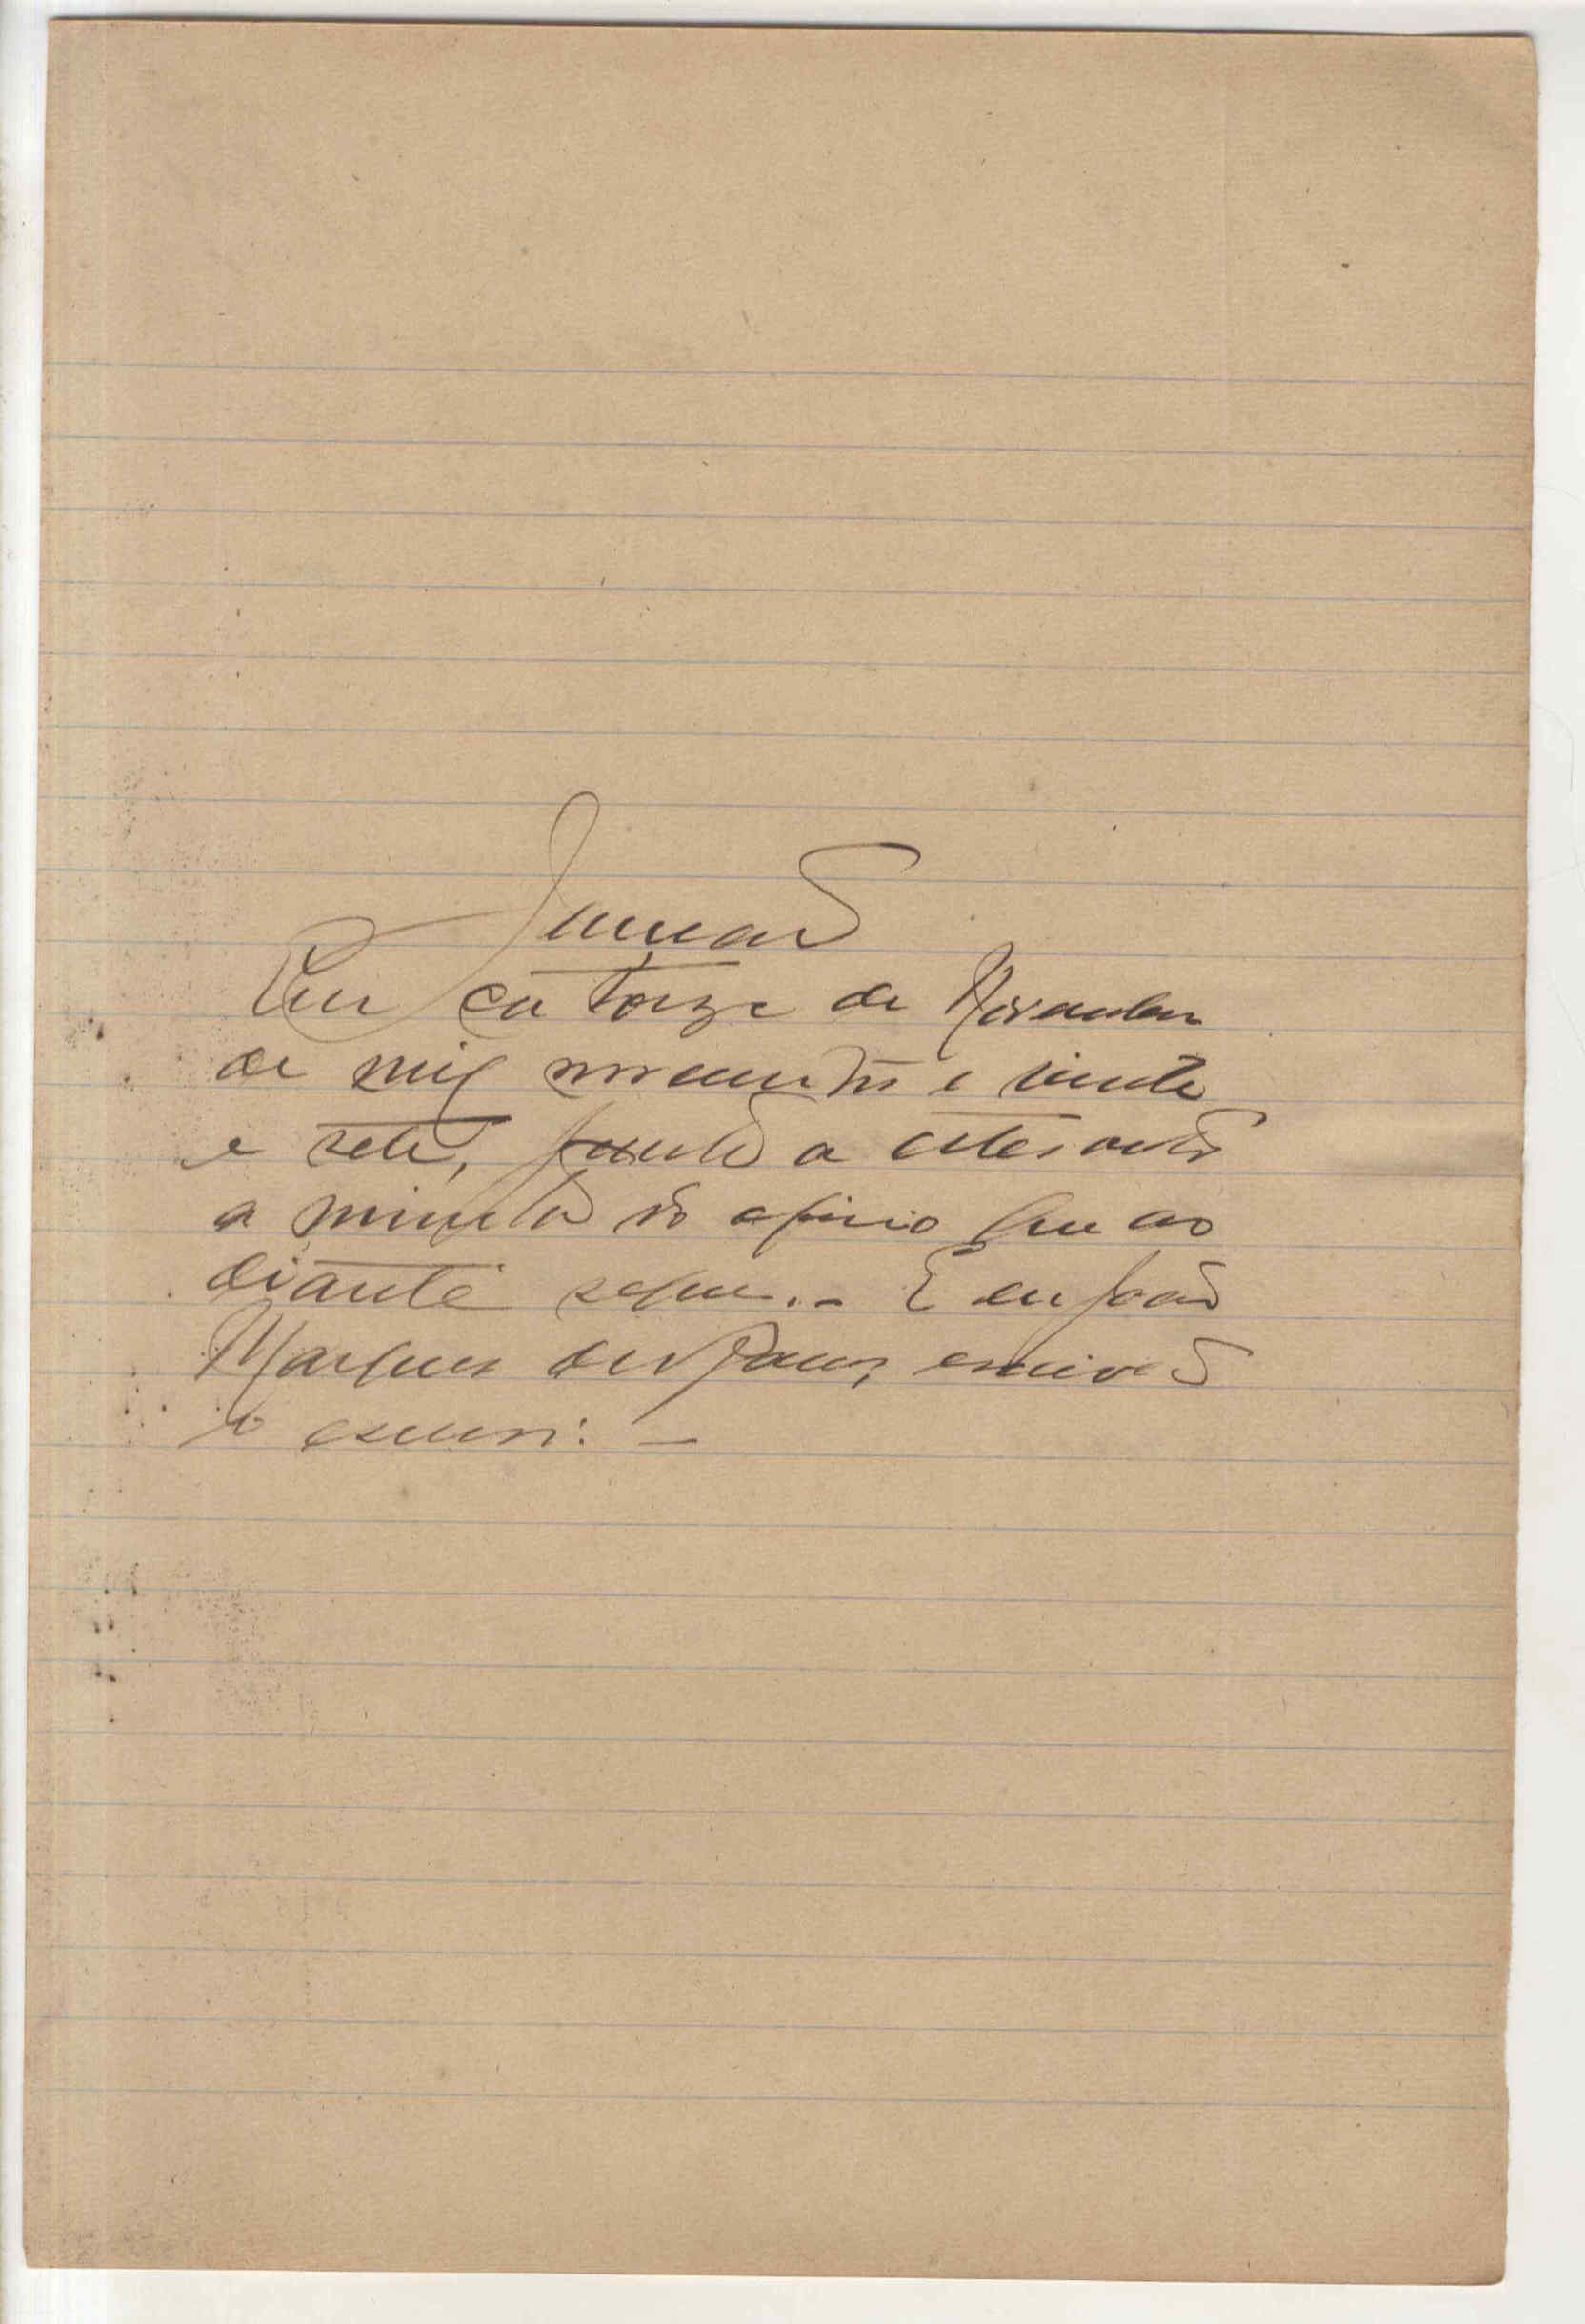 Junção
Em catorze de Novembro
de mil novecentos e vinte
e sete, junto a estes autos
a minuta do oficio que ao
diante segue. - E eu João
Marques dos, escrivão
o escrevi: -